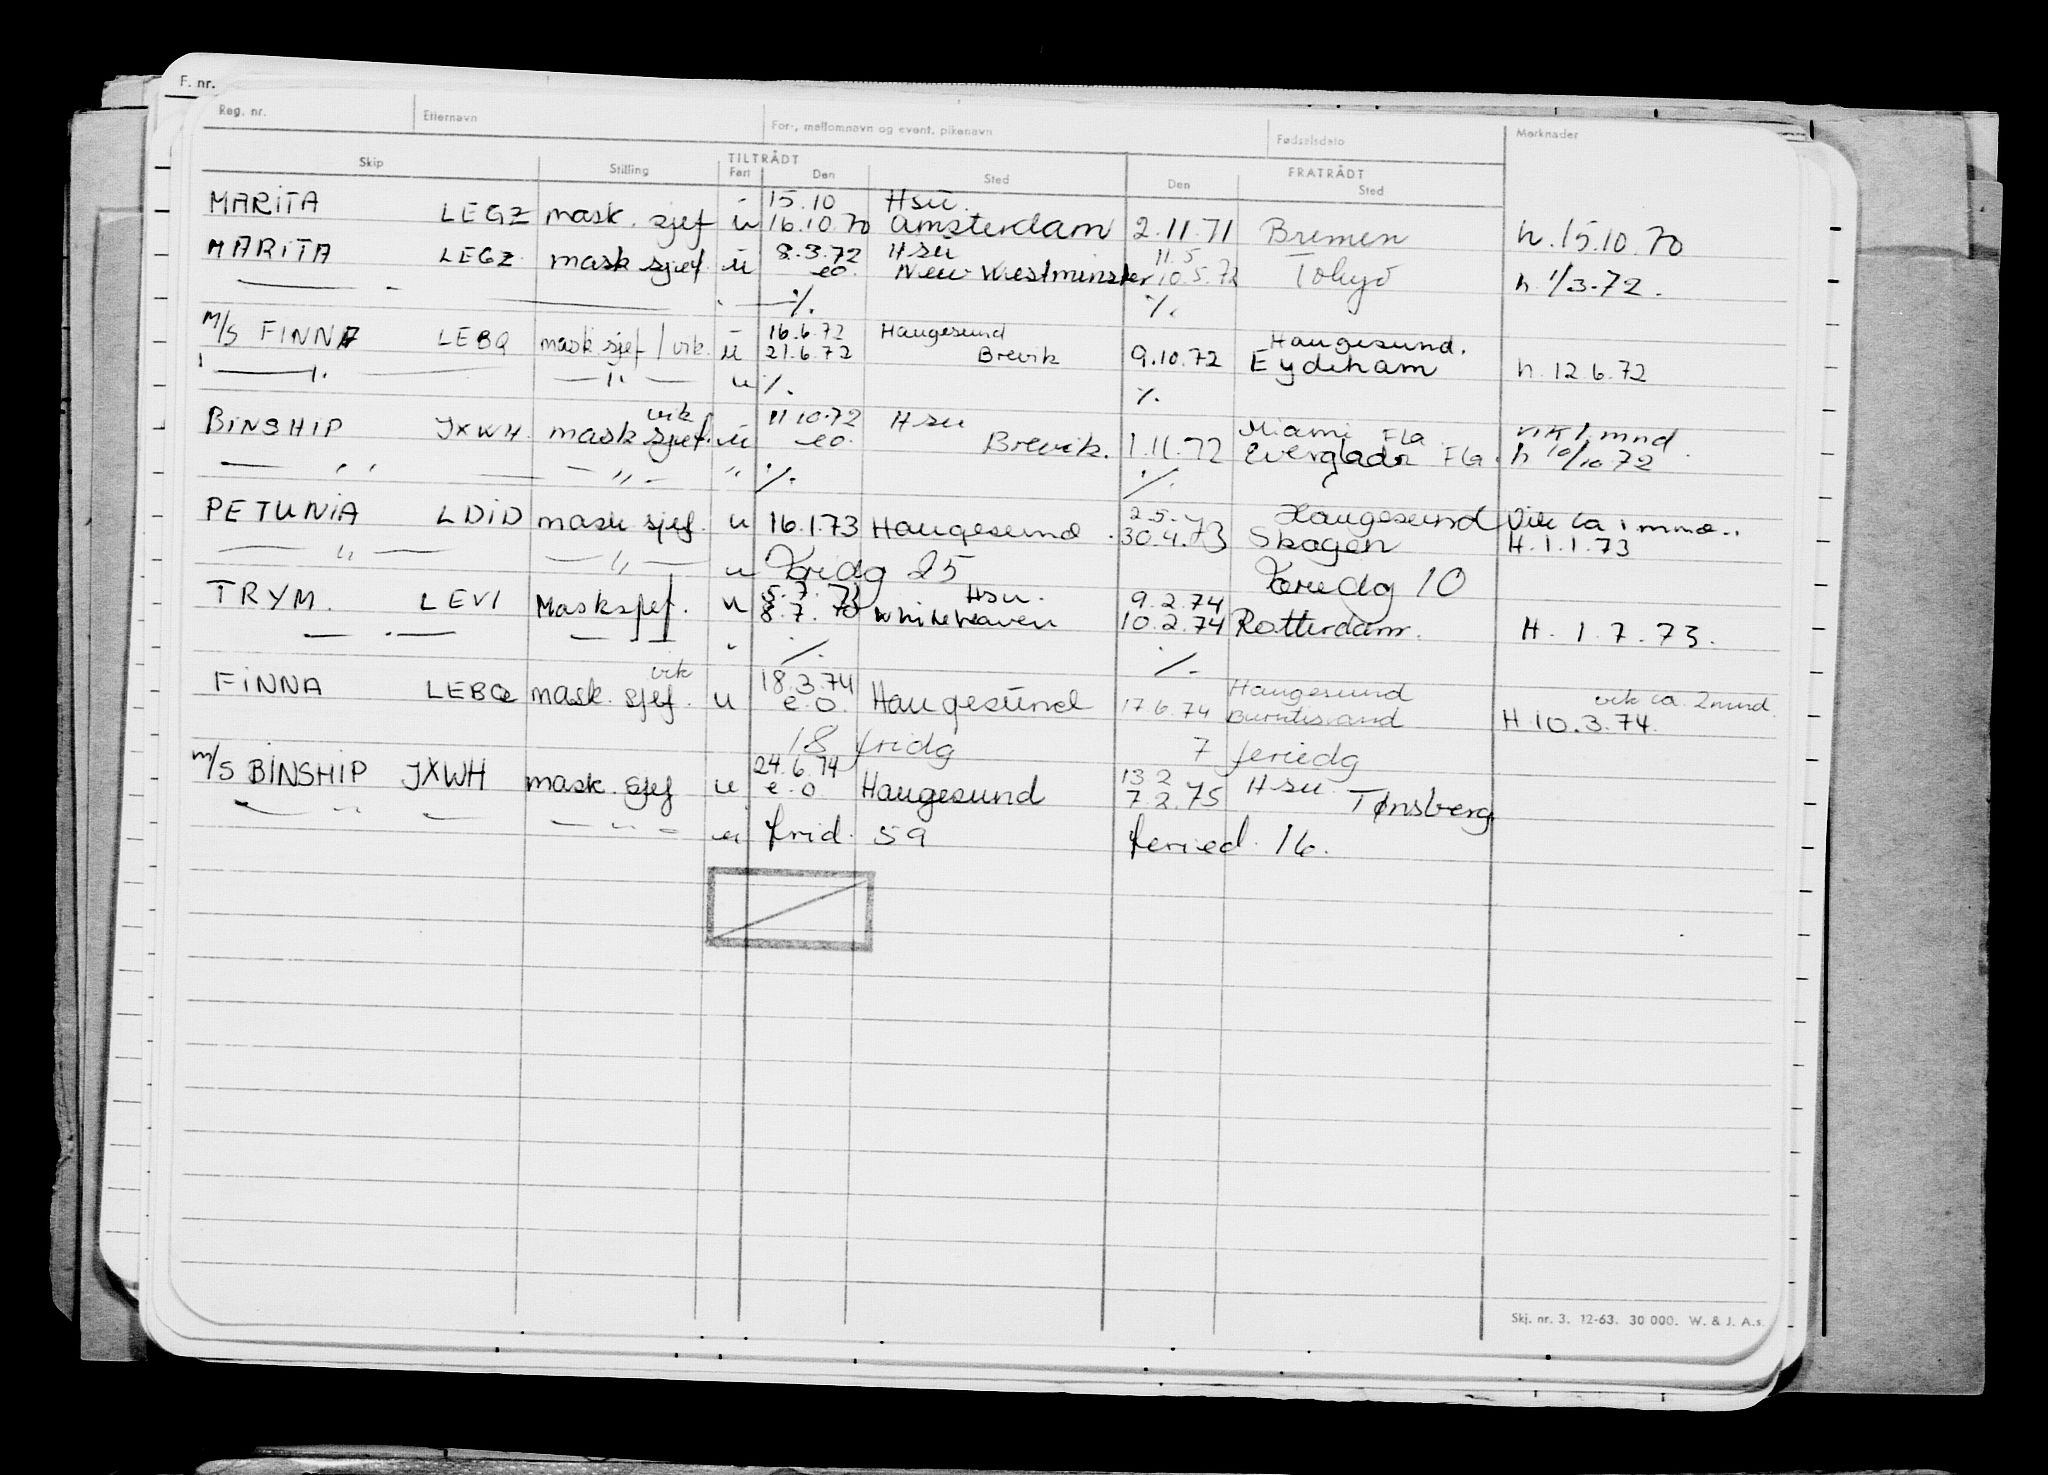 F. nr.
Reg. nr. Etternavn For-, mellomnavn og event. pikenavn Fødselsdato Merknader
Skip Stilling TILTRÅDT FRATRÅDT
Fart Den Sted Den Sted
15.10 Hsu.
MARITA LEGZ mask. sjef u 16.10.70 Amsterdam 2.11.71 Bremen h. 15.10.70
8.3.72 Hsu 11.5
MARITA LEGZ mask sjef u eo. New Westminster 10.5.72 Tokyo h 1/3-72.
— " — ./. ./.
16.6.72 Haugesund Haugesund.
M/S FINNA LEBQ mask sjef / vik. u 21.6.72 Brevik 9.10.72 Eydehamn h. 12.6.72
— " — — " — u ./. ./.
vik 11.10.72 Hsu Miami Fla. vik 1 mnd.
BINSHIP JXWH. mask sjef. u eo. Brevik. 1.11.72 Fla. h 10/10 72
— " — — " — " ./. ./.
2.5. Haugesund Vik ca 1 mnd..
PETUNIA LDID mask sjef. u 16.1.73 Haugesund. 30.4.73 Skagen H. 1.1.73
— " — — " — u Fridg 25 Feriedg 10
5.7.73 Hsu. 9.2.74
TRYM. LEVI Masksjef. u 8.7. Whitehaven 10.2.74 Rotterdam. H. 1.7.73.
— " — — " — " ./. ./.
vik 18.3.74 Haugesund vik ca. 2 mnd.
FINNA LEBQ mask. sjef. u e.o. Haugesund 17.6.74 Burntisland H. 10.3.74.
18 fridg 7 feriedg
24.6.74 13 2 Hsu.
m/S BINSHIP JXWH mask. sjef u e.o Haugesund 7.2.75 Tønsberg.
— " — — " — u frid. 59 feried. 16.
Skj. nr. 3. 12-63. 30 000. W. & J. A.s.